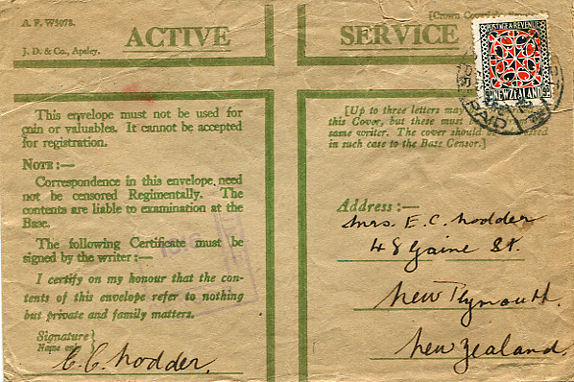 A. F. W3078.
J. D. & Co., Apsley.
ACTIVE SERVICE
[Crown
POSTAGE & REVENUE
NEW ZEALAND
PAID
This envelope must not be used for
coin or valuables. It cannot be accepted
for registration.
NOTE:—
Correspondence in this envelope need
not be censored Regimentally. The
contents are liable to examination at the
Base.
The following Certificate must be
signed by the writer:—
I certify on my honour that the con-
tents of this envelope refer to nothing
but private and family matters.
Signature
Name only
E. C. Hodder.
[Up to three letters may
this Cover, but these must
same writer. The cover should
in such case to the Base Censor.]
Address:—
Mrs. E. C. Hodder
48 Gaine St.
New Plymouth.
New Zealand.